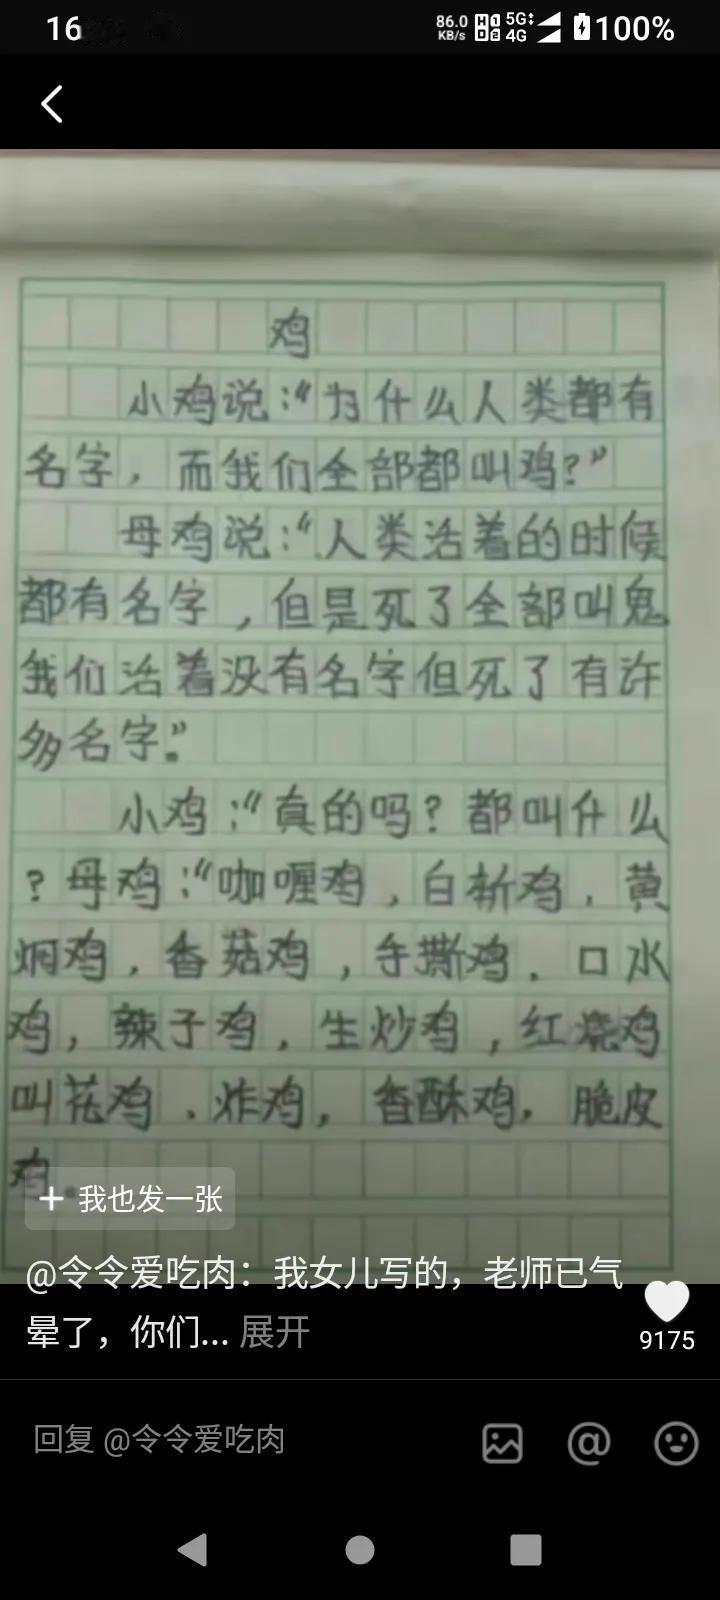 16
86.0
KB/s
HD 1 2
5G
4G
100%
鸡
小鸡说:“为什么人类都有
名字，而我们全部都叫鸡?”
母鸡说:“人类活着的时候
都有名字，但是死了全部叫鬼
我们活着没有名字但死了有许
多名字。”
小鸡:“真的吗?都叫什么
?母鸡:“咖喱鸡，白斩鸡，黄
焖鸡，香菇鸡，手撕鸡．口水
鸡，辣子鸡，生炒鸡，红烧鸡
叫花鸡、炸鸡，香酥鸡，脆皮
鸡
+ 我也发一张
@令令爱吃肉：我女儿写的，老师已气
晕了，你们... 展开
9175
回复 @令令爱吃肉